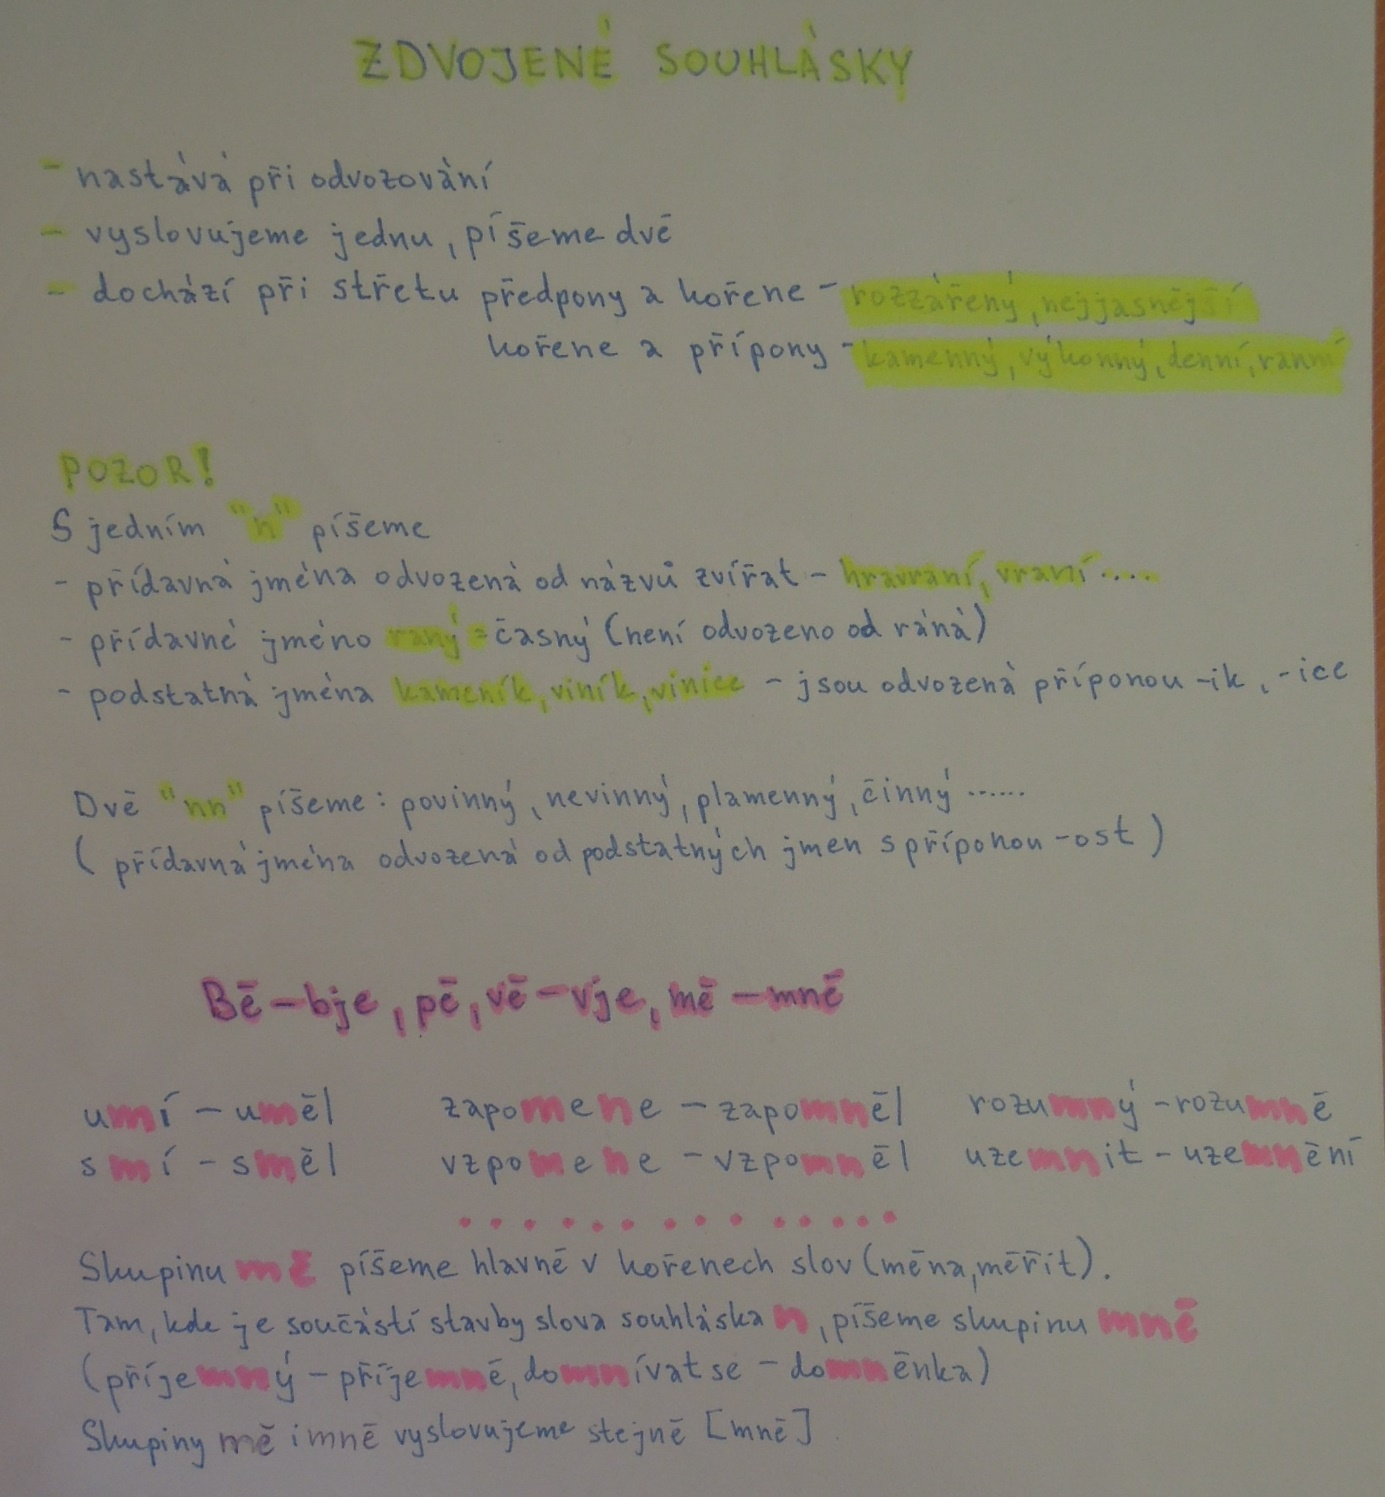 ZDVOJENÉ SOUHLÁSKY
- nastává při odvozování
- vyslovujeme jednu, píšeme dvě
- dochází při střetu předpony a kořene - rozzářený, nejjasnější
kořene a přípony - kamenný, výkonný, denní, ranní
POZOR!
S jedním "n" píšeme
- přídavná jména odvozená od názvů zvířat - hravraní, vraní....
- přídavné jméno raný = časný (není odvozeno od rána)
- podstatná jména kameník, viník, vinice - jsou odvozená příponou -ik, -ice
Dvě "nn" píšeme: povinný, nevinný, plamenný, činný ......
( přídavná jména odvozená od podstatných jmen s příponou -ost )
Bě - bje, pě, vě - vje, mě - mně
umí - uměl zapomene - zapomněl rozumný - rozumně
smí - směl vzpomene - vzpomněl uzemnit - uzemnění
Skupinu mě píšeme hlavně v kořenech slov (měna, měřit).
Tam, kde je součástí stavby slova souhláska n, píšeme skupinu mně
(příjemný - příjemně, domnívat se - domněnka)
Skupiny mě i mně vyslovujeme stejně [mně]